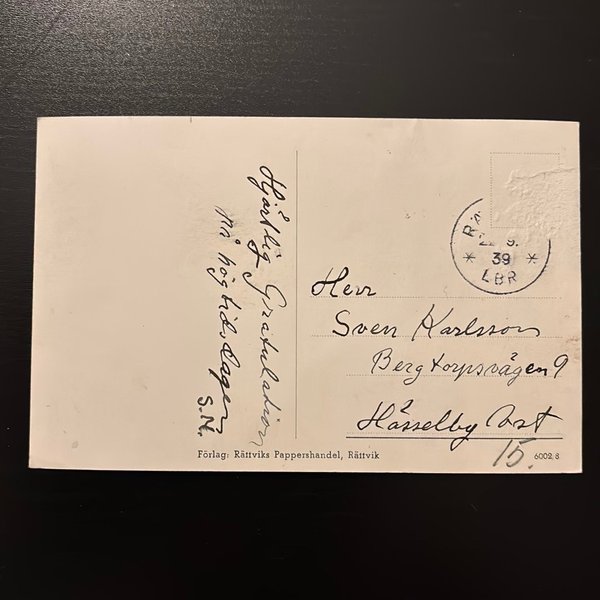 Hjärtlig Gratulation
på högtidsdagen
S.N.
Herr
Sven Karlsson
Bergtorpsvägen 9
Hässelby Vst
15.
39
LBR
Förlag: Rättviks Pappershandel, Rättvik
6002/8